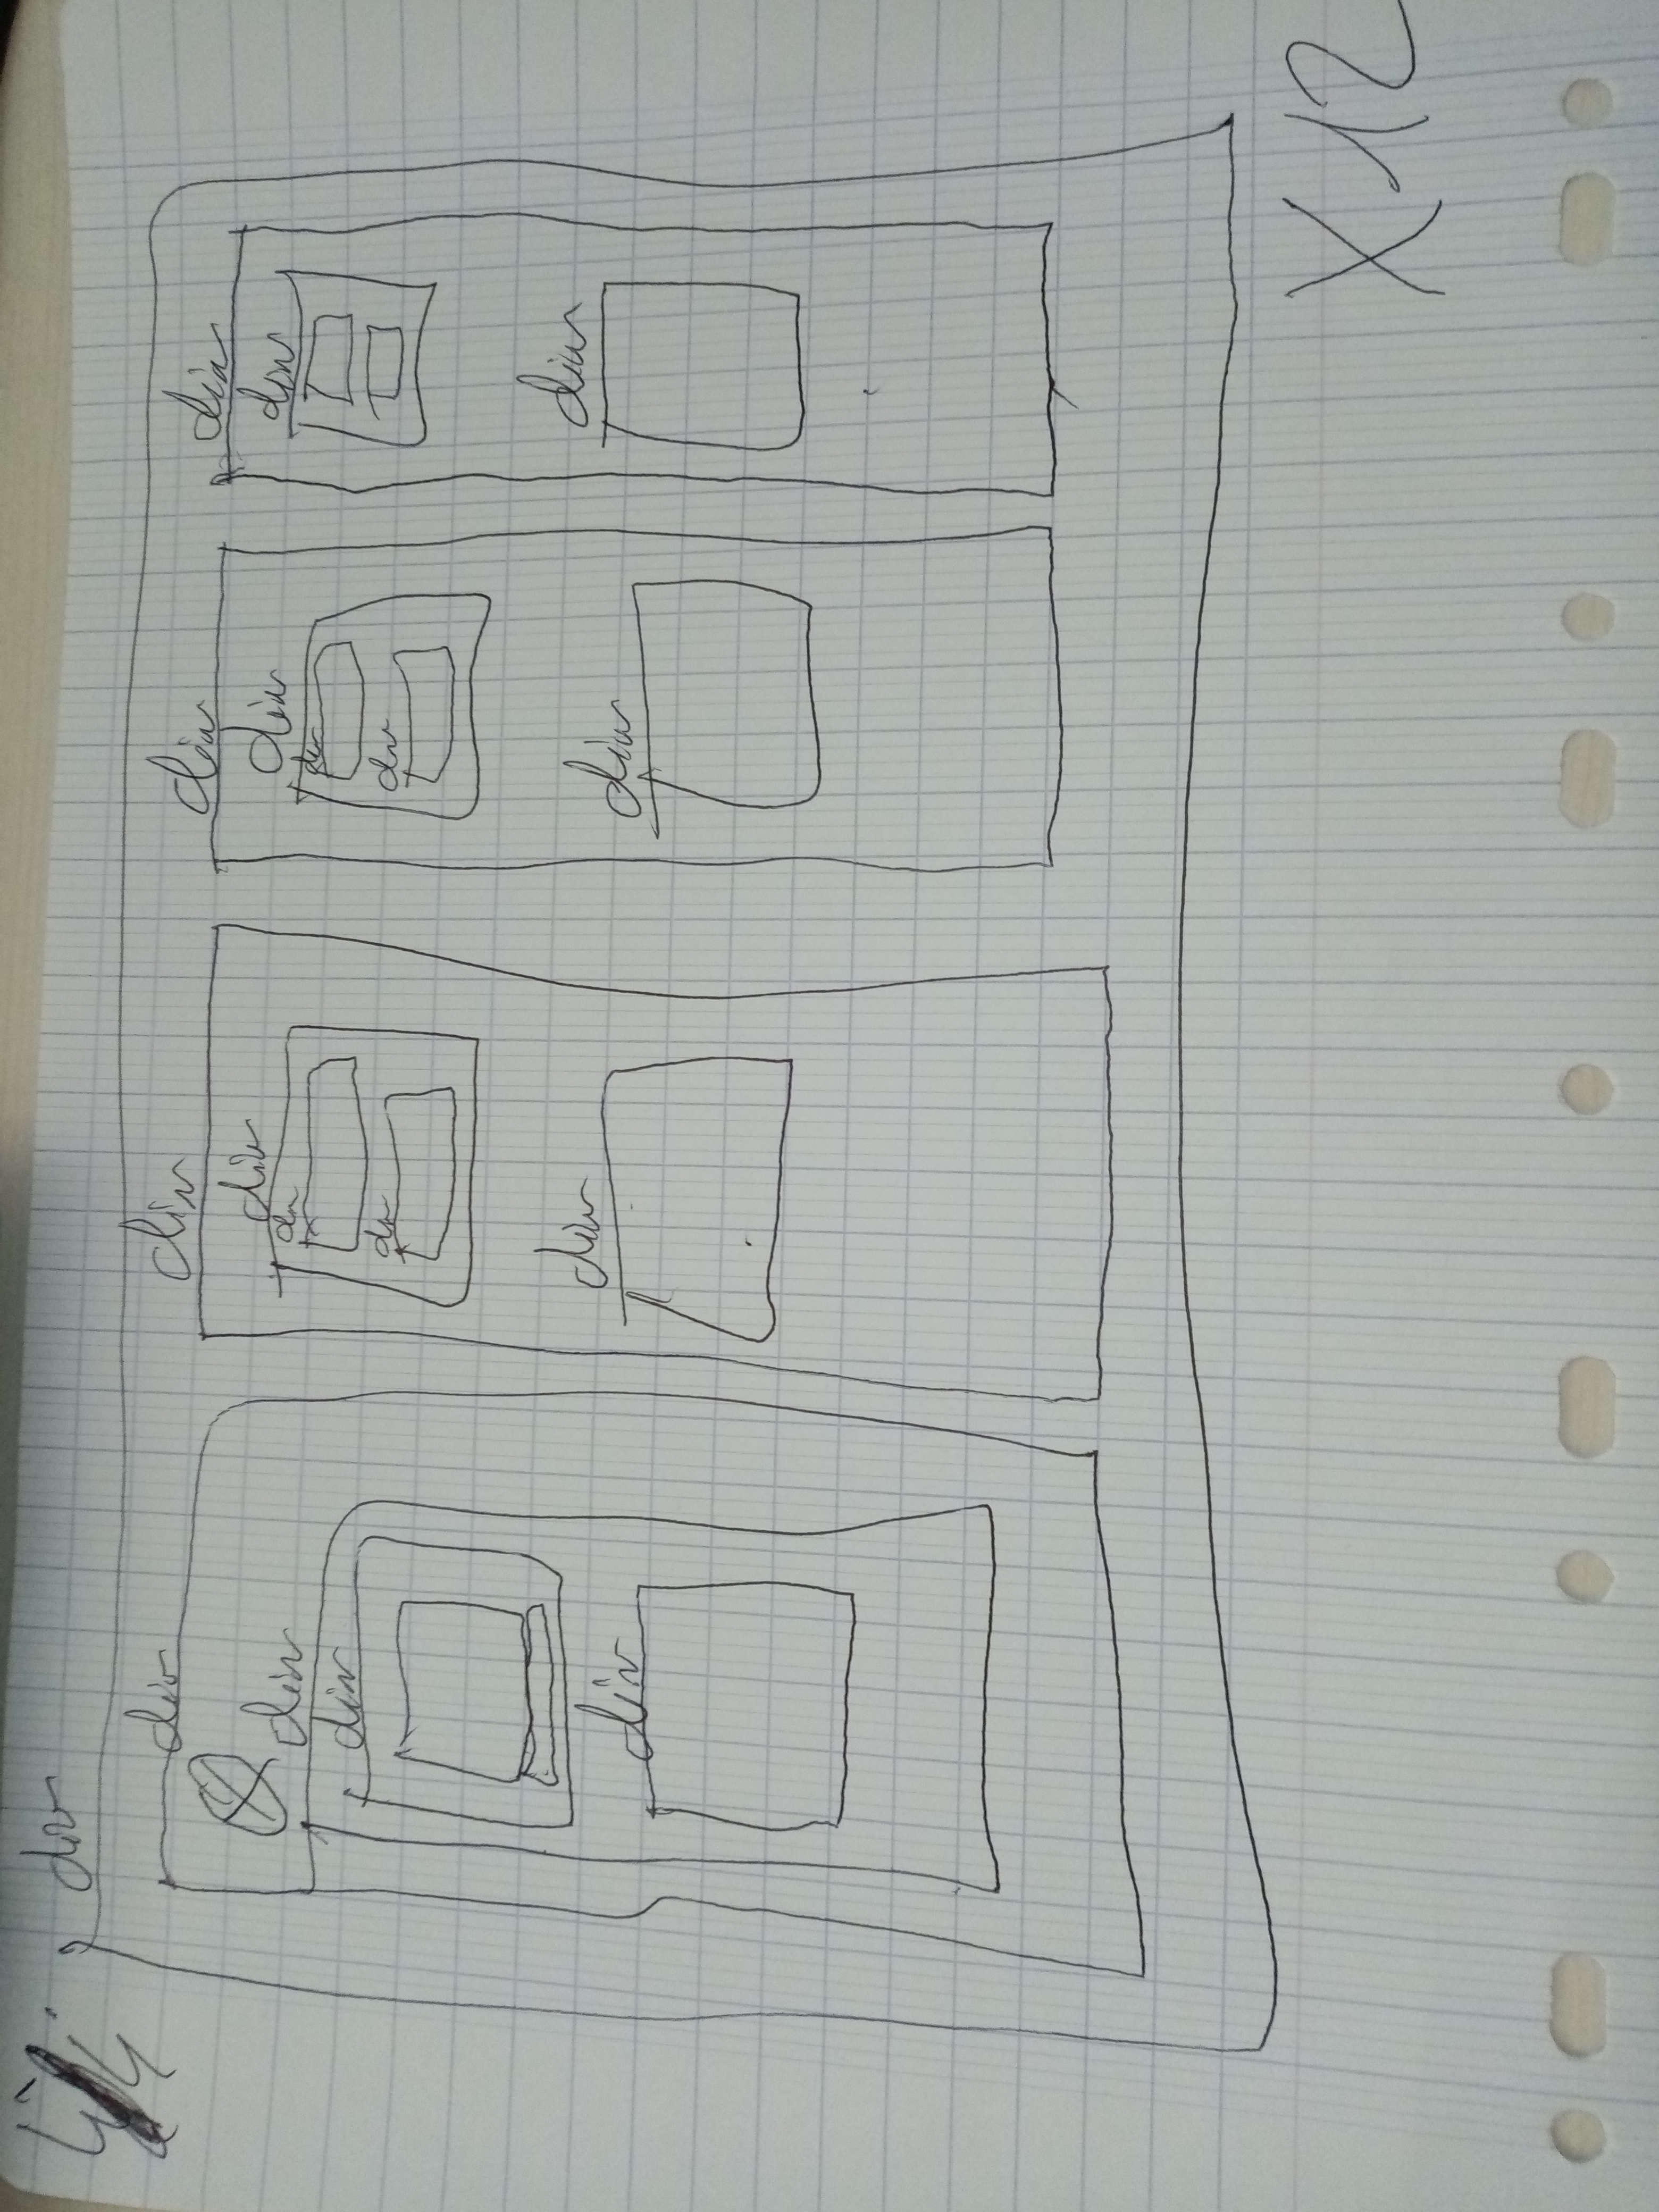 div
div div div div
div div div div
div div div
div div
div div div div
X12